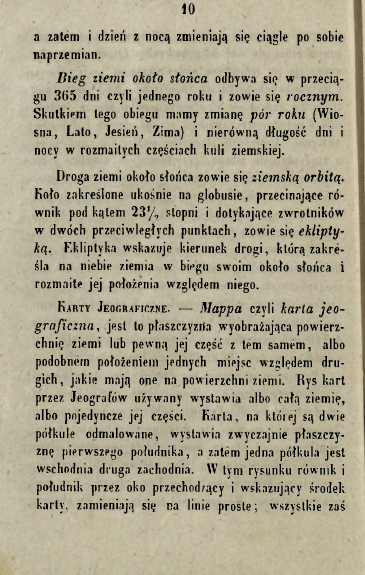 10
a zatem i dzień z nocą zmieniają się ciągle po sobie
naprzemian.
Bieg ziemi około słońca odbywa się w przecią-
gu 365 dni czyli jednego roku i zowie się rocznym.
Skutkiem tego obiegu mamy zmianę pór roku (Wio-
sna, Lato, Jesień, Zima) i nierówną długość dni i
nocy w rozmaitych częściach kuli ziemskiej.
Droga ziemi około słońca zowie się ziemską orbitą.
Koło zakreślone ukośnie na globusie, przecinające ró-
wnik pod kątem 23½ stopni i dotykające zwrotników
w dwóch przeciwległych punktach, zowie się eklipty-
ką. Ekliptyka wskazuje kierunek drogi, którą zakré-
śla na niebie ziemia w biegu swoim około słońca i
rozmaite jej położenia względem niego.
Karty Jeograficzne. — Mappa czyli karta jeo-
graficzna, jest to płaszczyzna wyobrażająca powierz-
chnię ziemi lub pewną jej część z tem samem, albo
podobnem położeniem jednych miejsc względem dru-
gich, jakie mają one na powierzchni ziemi. Rys kart
przez Jeografów używany wystawia albo całą ziemię,
albo pojedyncze jej części. Karta, na której są dwie
półkule odmalowane, wystawia zwyczajnie płaszczy-
znę pierwszego południka, a zatem jedna półkula jest
wschodnia druga zachodnia. W tym rysunku równik i
południk przez oko przechodzący i wskazujący środek
karty, zamieniają się na linie proste; wszystkie zaś